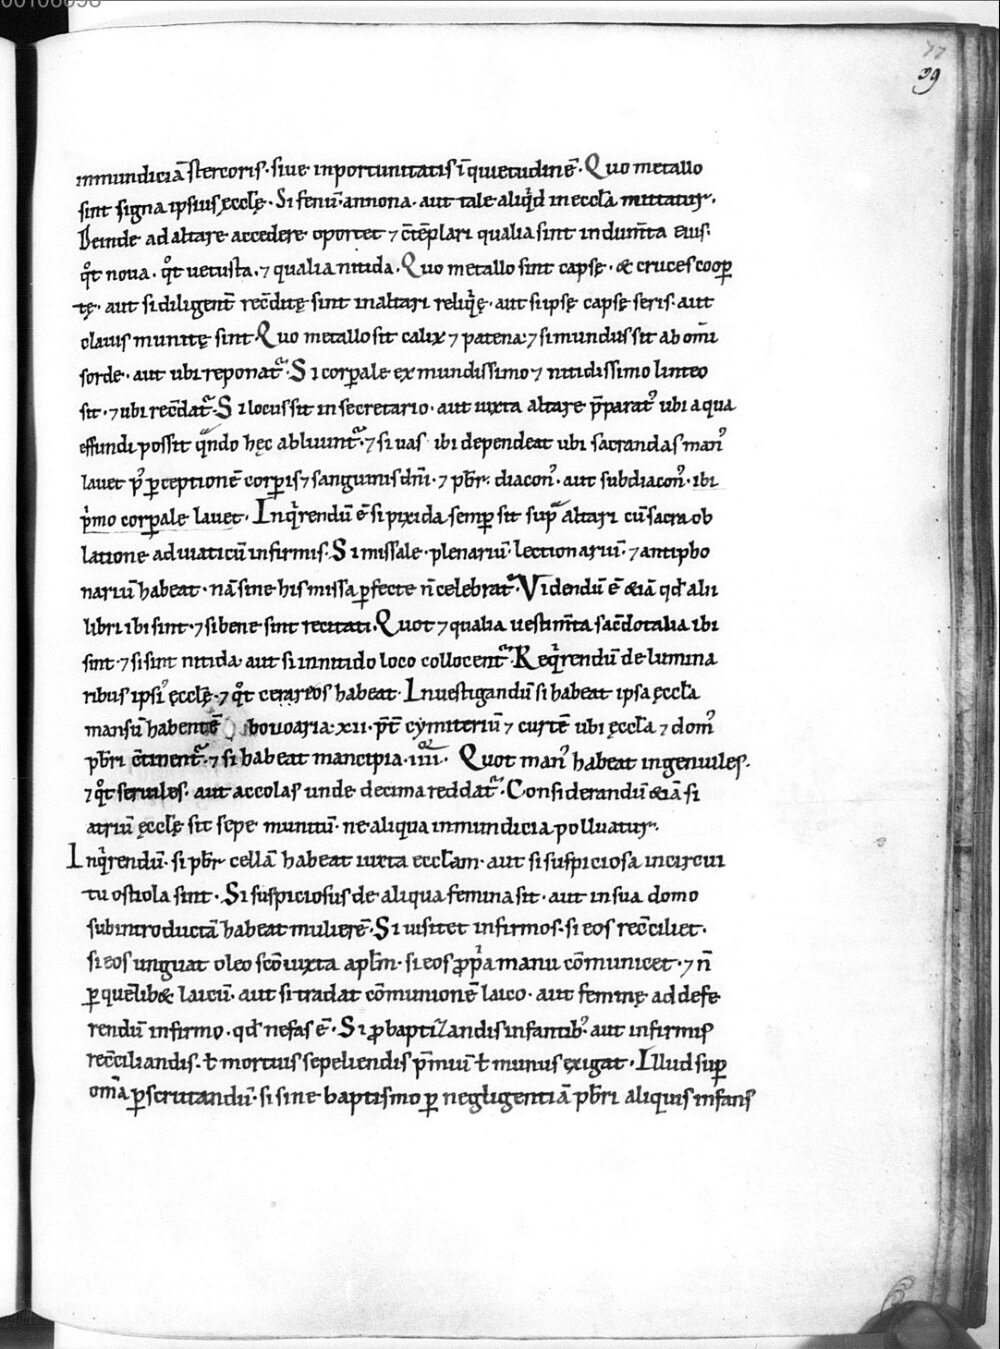 00106098
77
39
inmundiciā stercoris· siue inportunitatis īquietudinē· Quo metallo
sint signa ipsius ęccłę· Si fenū· annona· aut tale aliqͥd in eccła mittatur·
Deinde ad altare accedere oportet ⁊ c̄tēplari qualia sint indum̄ta eius·
qͦt noua· qͦt uetusta· ⁊ qualia nitida· Quo metallo sint capsę· & cruces cooꝑ
tę· aut si diligent̄ rec̄ditę sint in altari reliqͥę· aut si ipsę capsę seris· aut
clauis munitę sint· Quo metallo sit calix ⁊ patena· ⁊ si mundus sit ab om̄i
sorde· aut ubi reponat᷑· Si corꝑale ex mundissimo ⁊ nitidissimo linteo
sit· ⁊ ubi rec̄dat᷑· Si locus sit in secretario· aut iuxta altare p̄parat᷒ ubi aqua
effundi possit qͣndo hęc abluunt᷑· ⁊ si uas ibi dependeat ubi sacrandas man᷒
lauet p᷒ ꝑceptionē corꝑis ⁊ sanguinis dn̄i· ⁊ pb̄r· diacon᷒· aut subdiacon᷒· ibi
pͥmo corꝑale lauet· Inqͥrendū ē si pixida semꝑ sit supͣ altari cū sacra ob
latione ad uiaticū infirmis· Si missale· plenariū· lectionariū· ⁊ antipho
nariū habeat· nā sine his missa ꝑfecte n̄ celebrat᷑· Videndū ē &iā qd̄ alii
libri ibi sint· ⁊ si bene sint recitati· Quot ⁊ qualia uestim̄ta sac̄dotalia ibi
sint· ⁊ si sint nitida· aut si in nitido loco collocent᷑· Reqͥrendū de lumina
ribus ipsi᷒ ęccłę· ⁊ qͦt cerareos habeat· Inuestigandū si habeat ipsa ęccła
mansū habentē bouoaria· xii· p̄t̄ cymiteriū ⁊ curtē ubi ęccła ⁊ dom᷒
pb̄ri c̄tinent᷑· ⁊ si habeat mancipia· iiii· Quot man᷒ habeat ingenuiles·
⁊ qͦt seruiles· aut accolas unde decima reddat᷑· Considerandū &iā si
atriū ęccłę sit sepe munitū· ne aliqua inmundicia polluatur·
Inqͥrendū· si pb̄r cellā habeat iuxta ecclam· aut si suspiciosa in circui
tu ostiola sint· Si suspiciosus de aliqua femina sit· aut in sua domo
subintroductā habeat mulierē· Si uisitet infirmos· si eos rec̄ciliet·
si eos unguat oleo sc̄o iuxta aplm̄· si eos ꝓpͥa manu cōmunicet· ⁊ n̄
ꝑ quēlib& laicū· aut si tradat cōmunionē laico· aut feminę ad defe
rendū infirmo· qd̄ nefas ē· Si ꝓ baptizandis infantib᷒· aut infirmis
rec̄ciliandis· ł mortuis sepeliendis p̄miū ł munus exigat· Illud suꝑ
om̄a ꝑscrutandū· si sine baptismo ꝑ negligentiā pb̄ri aliquis infans